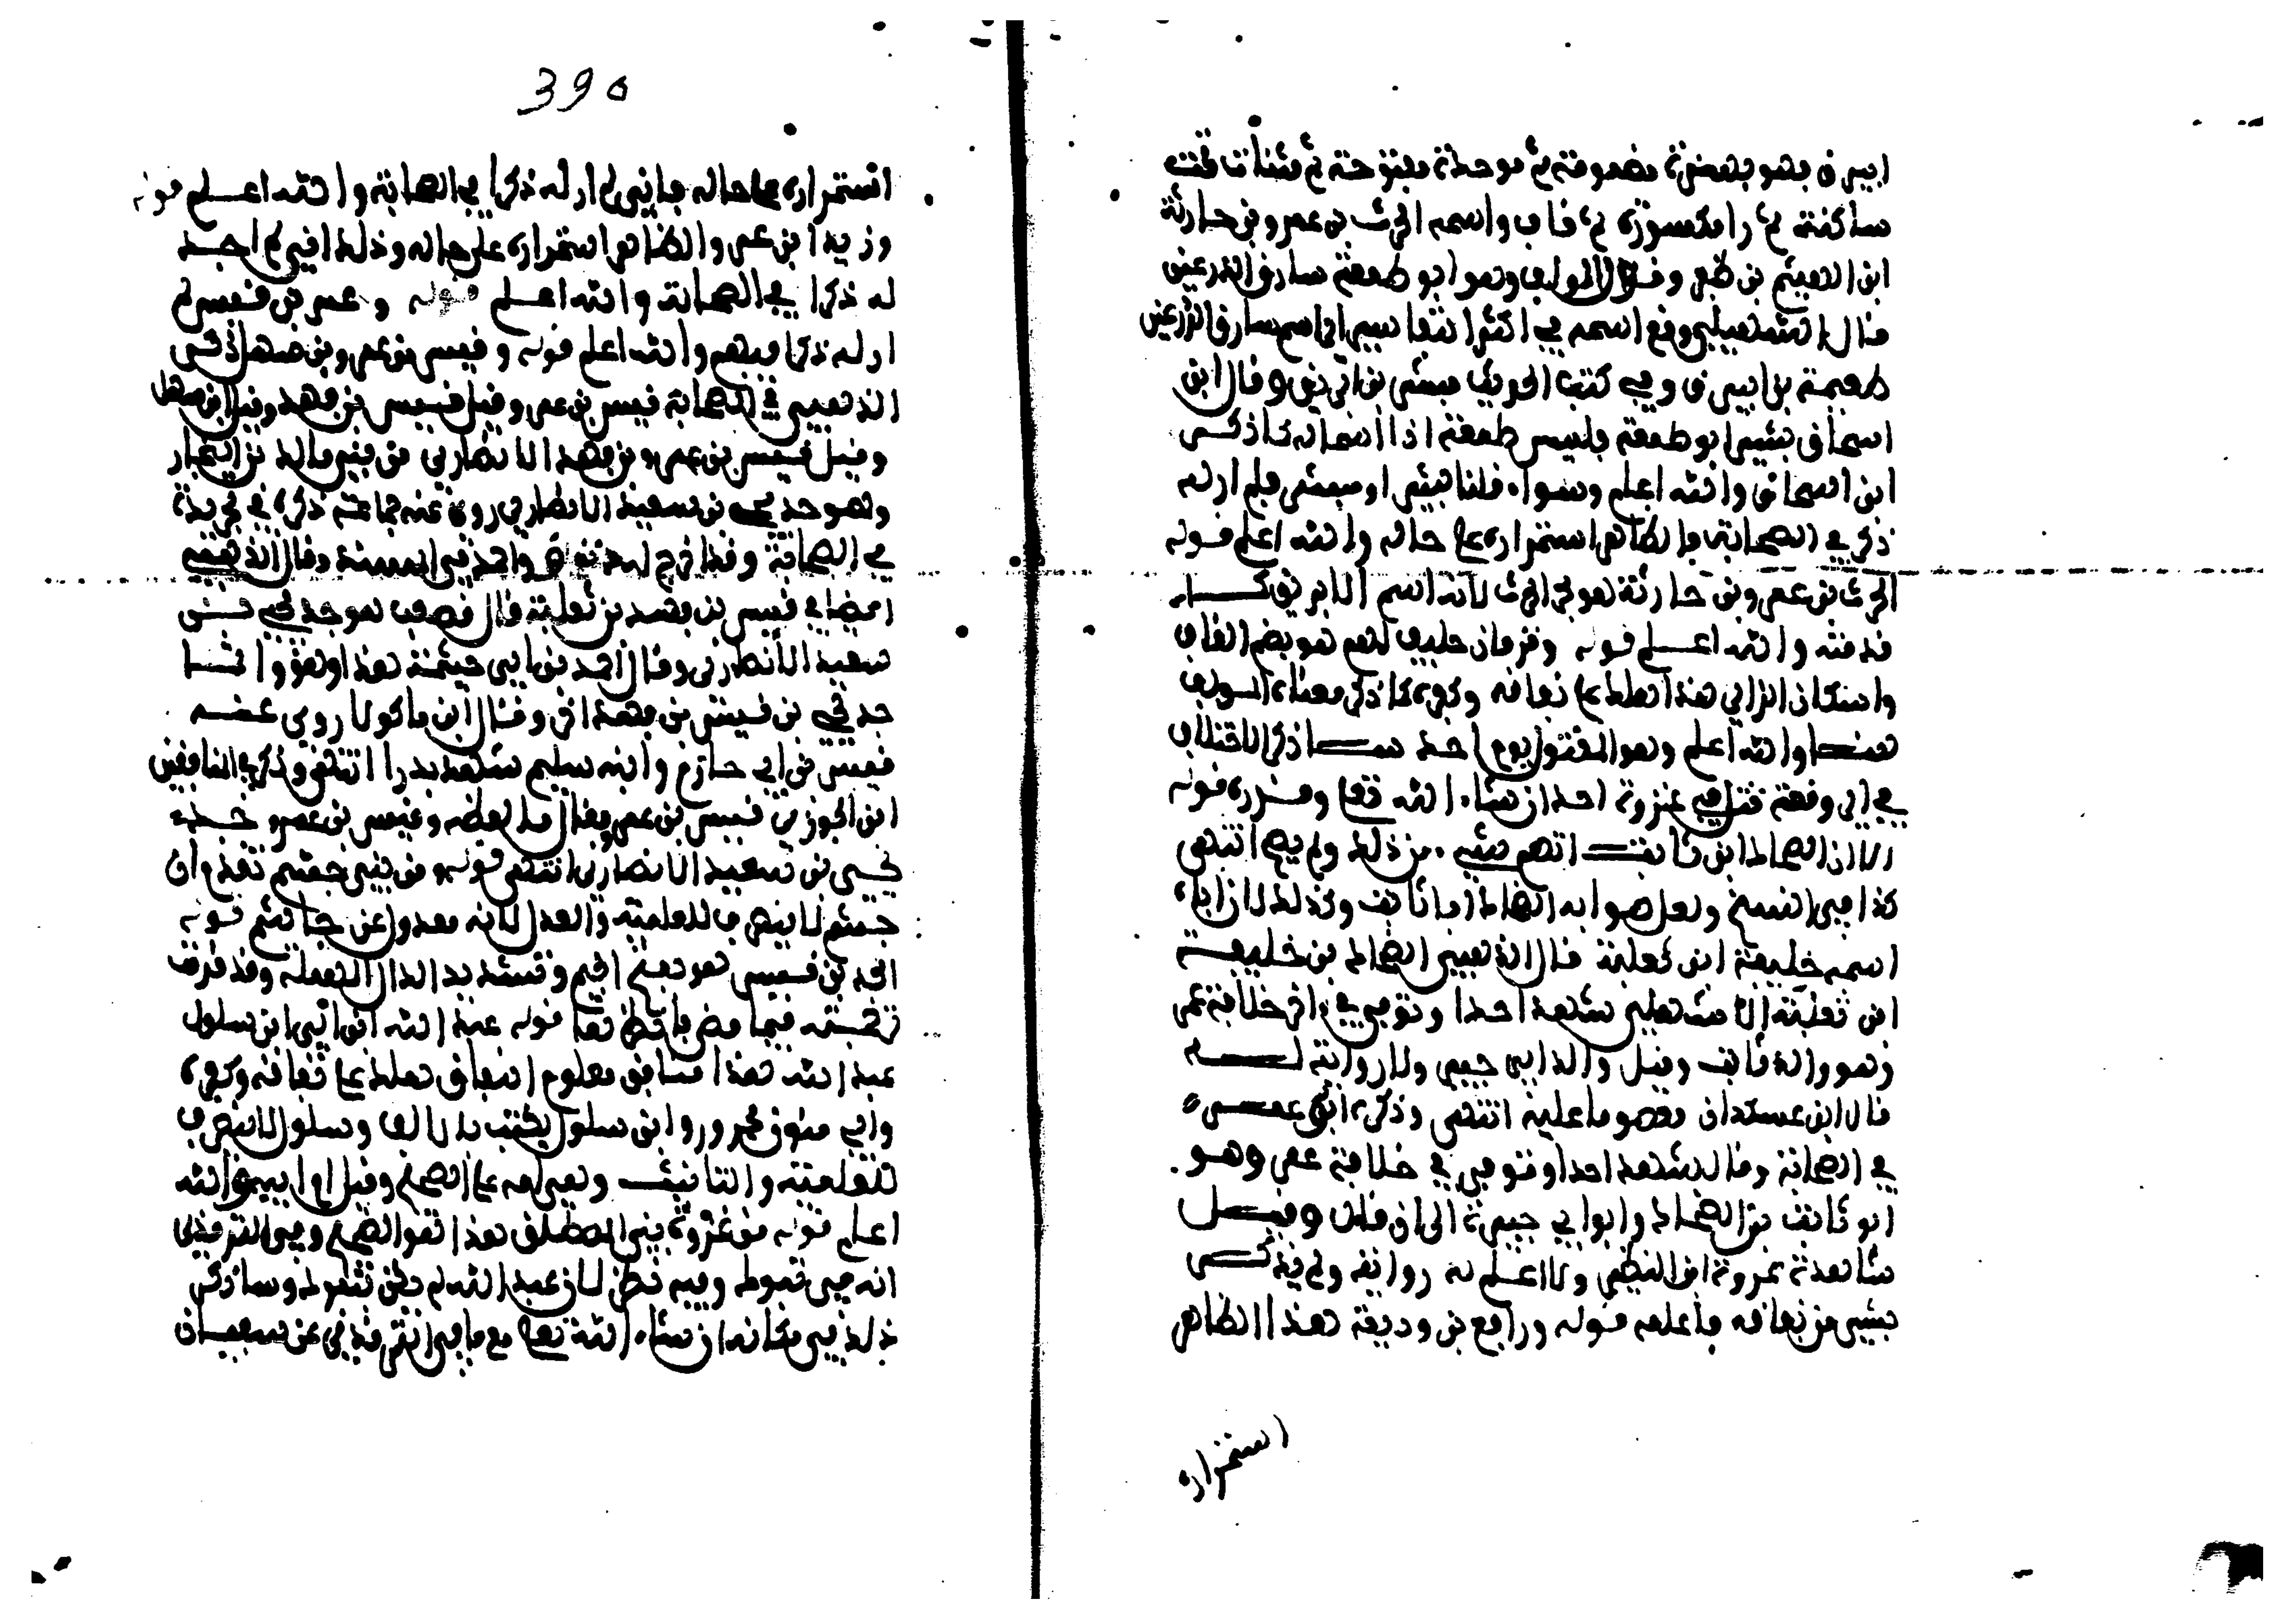 ابيرق فهو بهمزة مضمومة ثم موحدة مفتوحة ثم مثناة تحت
ساكنة ثم را مكسورة ثم قاف واسمه الحرث بن عمرو بن حارثة
ابن الهيثم بن ظفر وقال المولف وهو ابو طعمة سارق الدرعين
قال السهيلي وقع اسمه في اكثر التفاسير اي اسم سارق الدرعين
طعيمة بن ابيرق وفي كتب الحديث بشير بن ابيرق وقال ابن
اسحاق بشير ابو طعمة فليس طعمة اذا اسما له كما ذكر
ابن اسحاق والله اعلم وسواء قلنا بشير او مبشر فلم ار له
ذكر في الصحابة فالظاهر استمراره على حاله والله اعلم قوله
الحرث بن عمرو بن حارثة هو بجر الحرث لانه اسم الابيرق كما
قدمته والله اعلم قوله وقزمان حليف لهم هو بضم القاف
واسكان الزاي هذا هلك على نفاقه وكفره كما ذكر معناه المولف
هنا والله اعلم وهو المقتول يوم احد ساذكر الاختلاف
في اي وقعة قتل في غزوة احد ان شاء الله تعا وقدره قوله
الا ان الضحاك ابن ثابت اتهم بشيء من ذلك ولم يصح انتهى
كذا في النسخ ولعل صوابه الضحاك ابا ثابت وكذلك لان اباه
اسمه خليفة ابن ثعلبة قال الذهبي الضحاك بن خليفة
ابن ثعلبة الاشهلي شهد احدا وتوفي في اخر خلافة عمر
وهو والد ثابت وقيل والد ابي جبير ولا رواية له
قال ابن عبد البر انتهى وذكره ابو عمر
في الصحابة وقال شهد احدا وتوفي في خلافة عمر وهو
ابو ثابت بن الضحاك وابو ابي جبيرة الى ان قال وقيل
شاهدته غزوة ابن النضير ولا اعلم له رواية ولم يذكر
بشيء من نفاقه فاعلمه قوله ورافع بن وديعة هذا الظاهر
استمراره
390
استمراره على حاله فاني لم ار له ذكرا في الصحابة والله اعلم قوله
وزيد ابن عمرو الظاهر استمراره على حاله وذلك اني لم اجد
له ذكرا في الصحابة والله اعلم قوله وعمرو بن قيس لم
ار له ذكرا فيهم والله اعلم قوله وقيس بن عمرو بن سهل ذكر
الذهبي في الصحابة قيس بن عمرو وقيل قيس بن قهد وقيل ابن سهل
وقيل قيس بن عمرو بن قهد الانصاري من بني مالك بن النجار
وهو جد يحيى بن سعيد الانصاري روى عنه جماعة ذكره في تجريده
في الصحابة وقد اخرج له د ت ق واحمد في المسند وقال الذهبي
ايضا في قيس بن قهد بن ثعلبة قال مصعب هو جد يحيى بن
سعيد الانصاري وقال احمد بن ابي خيثمة هذا وهم وانما
جد يحيى بن قيس بن قهد اخر وقال ابن ماكولا روى عنه
قيس بن ابي حازم وابنه سليم شهد بدرا انتهى وذكر في المنافقين
ابن الجوزي قيس بن عمرو فقال ما لفظه وقيس بن عمرو جد
يحيى بن سعيد الانصاري انتهى قوله ومن بني جشم تقدم ان
جشم لا ينصرف للعلمية والعدل لانه معدول عن جاشم قوله
الجد بن قيس هو بفتح الجيم وتشديد الدال المهملة وقد قدمت
ترجمته فيما مضى فانظرها قوله عبد الله ابن ابي ابن سلول
عبد الله هذا منافق معلوم النفاق هلك على نفاقه وكفره
وابي منون مجرور وابن سلول يكتب بالالف وسلول لا ينصرف
للعلمية والتانيث وهي امه على الصحيح وقيل ام ابيه والله
اعلم قوله من غزوة بني المصطلق هذا هو الصحيح وفي الترمذي
انه في تبوك وفيه نظر لان عبد الله لم يكن بتبوك وساذكر
ذلك في مكانه ان شاء الله تعا مع ما في الترمذي عن سفيان